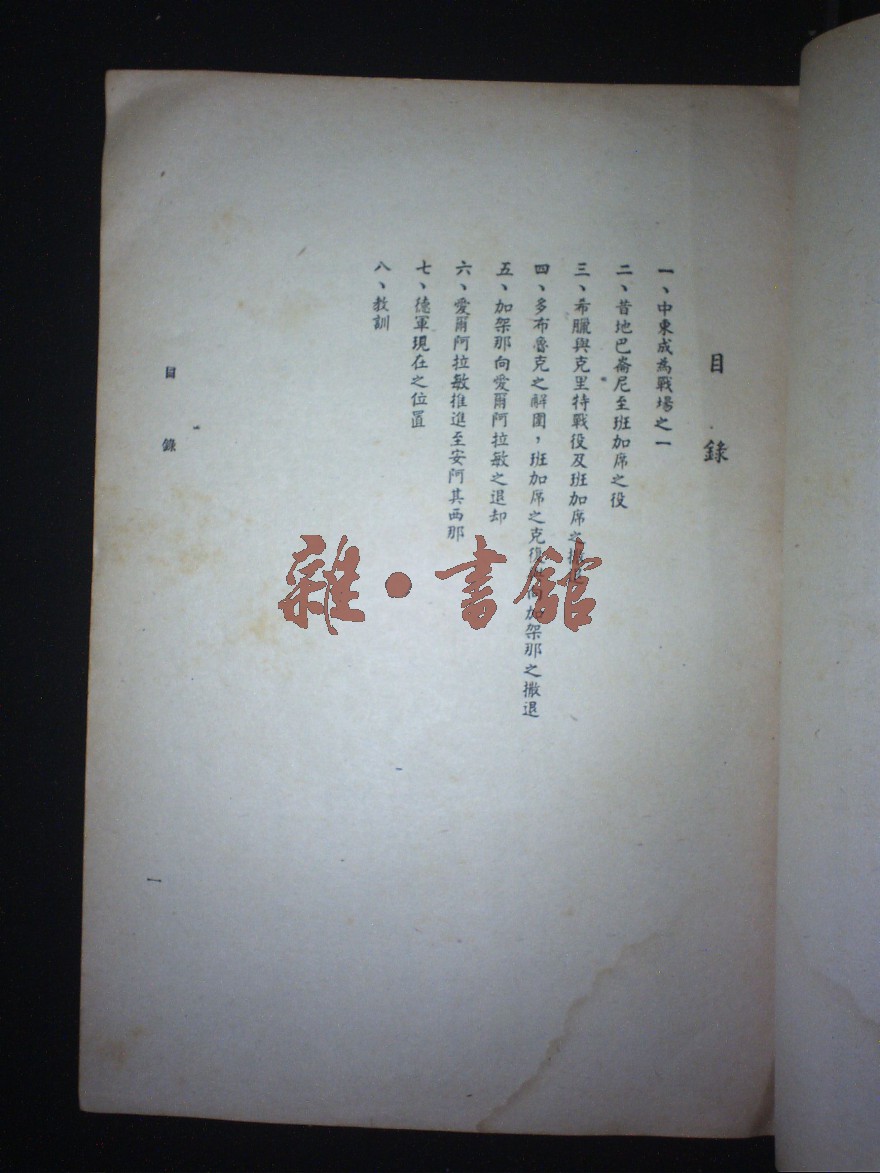 目錄
一、中東成為戰場之一
二、昔地巴崙尼至班加席之役
三、希臘與克里特戰役及班加席之撤
四、多布魯克之解圍，班加席之克復 加架那之撤退
五、加架那向愛爾阿拉敏之退却
六、愛爾阿拉敏推進至安阿其西那
七、德軍現在之位置
八、教訓
目錄
一
雜·書館